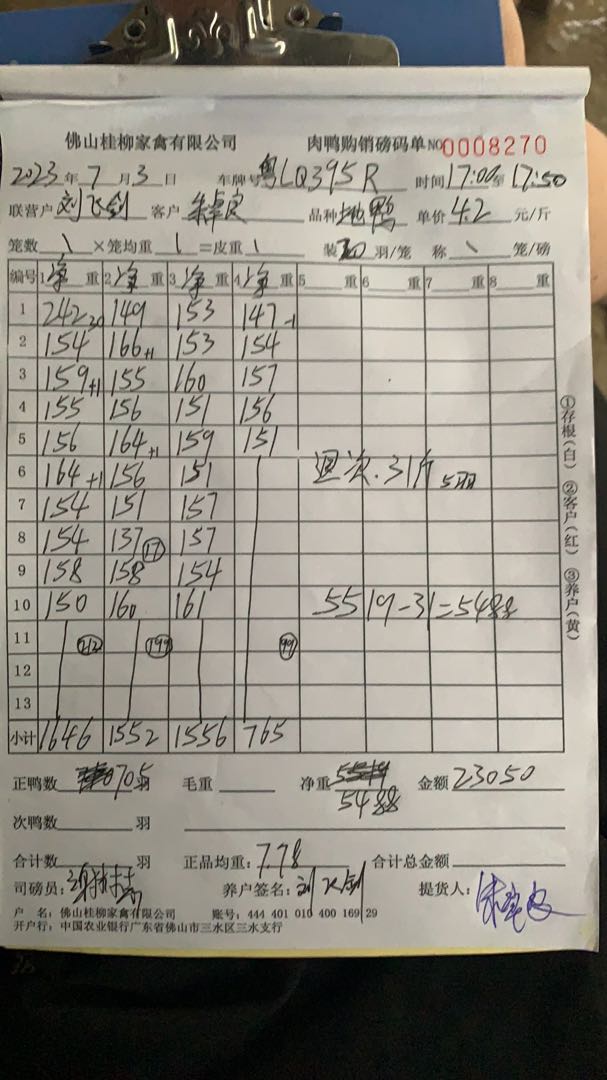 佛山桂柳家禽有限公司 肉鸭购销磅码单 NO 0008270
2023年7月3日 车牌号粤LQ395R 时间17:00至17:50
联营户刘飞剑 客户 品种 鸭 单价4.2元/斤
笼数\×笼均重\=皮重\ 装 羽/笼 称\笼/磅
编号 1净重 2净重 3净重 4净重 5重 6重 7重 8重
1 242 30 149 153 147 -1
2 154 166 +1 153 154
3 159 +1 155 160 157
4 155 156 151 156
5 156 164 +1 159 151
6 164 +1 156 151 退次.31斤 5羽
7 154 151 157
8 154 137 17 157
9 158 158 154
10 150 160 161 5519-31=5488
11 212 199 99
12
13
小计 1646 1552 1556 765
正鸭数705羽 毛重 净重5519 金额23050
5488
次鸭数 羽
合计数 羽 正品均重:7.78 合计总金额
司磅员: 养户签名:刘飞剑 提货人:
户 名:佛山桂柳家禽有限公司 账号:444 401 010 400 169 29
开户行:中国农业银行广东省佛山市三水区三水支行
①存根(白) ②客户(红) ③养户(黄)